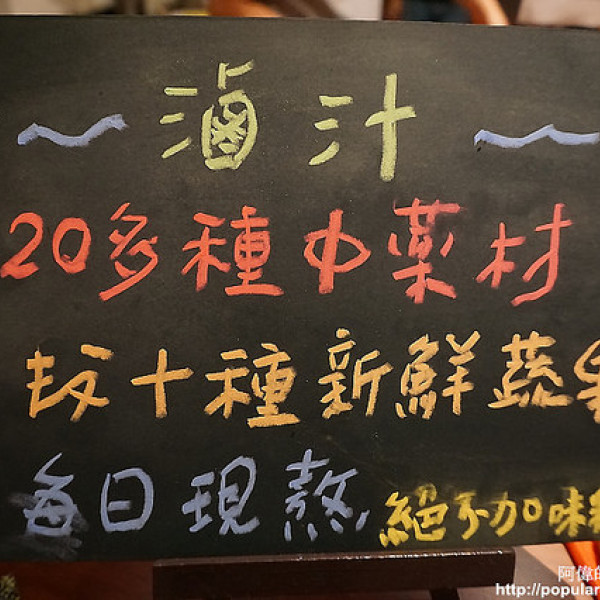 ~滷汁~
20多種中藥材
十種新鮮蔬果
每日現熬 絕不加味
阿偉的
http://popular